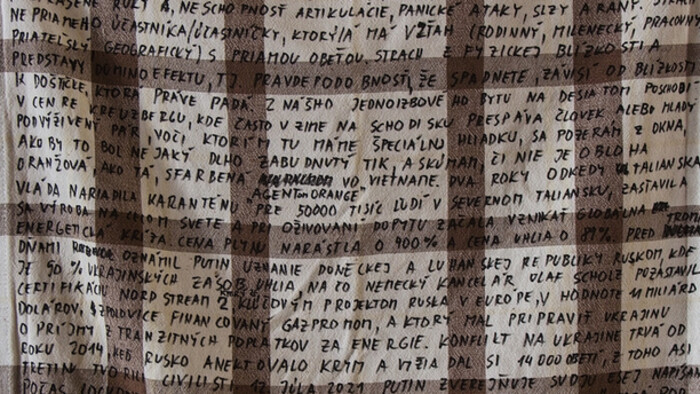 RUKY A, NESCHOPNOSŤ ARTIKULÁCIE, PANICKÉ ATAKY, SLZY A RANY.
NE PRIAMEHO ÚČASTNÍKA/ÚČASTNÍČKY, KTORÝ/Á MÁ VZŤAH (RODINNÝ, MILENECKÝ, PRACOVNÝ
PRIATEĽSKÝ GEOGRAFICKÝ) S PRIAMOU OBEŤOU. STRACH Z FYZICKEJ BLÍZKOSTI A
PREDSTAVY DOMINO EFEKTU, TJ. PRAVDEPODOBNOSŤ, ŽE SPADNETE, ZÁVISÍ OD BLÍZKOSTI
K DOSTIČKE, KTORÁ PRÁVE PADÁ. Z NÁŠHO JEDNOIZBOVÉHO BYTU NA DESIATOM POSCHODÍ
V CENTRE KREUZBERGU, KDE ČASTO V ZIME NA SCHODISKU PRESPÁVA ČLOVEK ALEBO MLADÝ
PODVÝŽIVENÝ PÁR, VOČI KTORÝM TU MÁME ŠPECIÁLNU HLIADKU, SA POZERÁM Z OKNA,
AKO BY TO BOL NEJAKÝ DLHO ZABUDNUTÝ TIK, A SKÚMAM, ČI NIE JE OBLOHA
ORANŽOVÁ AKO TÁ, SFARBENÁ "AGENTOM ORANGE" VO VIETNAME. DVA ROKY ODKEDY TALIANSKA
VLÁDA NARIADILA KARANTÉNU PRE 50000 TISÍC ĽUDÍ V SEVERNOM TALIANSKU, ZASTAVILA
SA VÝROBA NA CELOM SVETE PRI OŽIVOVANÍ DOPYTU ZAČALA VZNIKAŤ GLOBÁLNA
ENERGETICKÁ KRÍZA. CENA PLYNU NARÁSTLA O 400% A CENA UHLIA O 89%. PRED TROMI
DŇAMI OZNÁMIL PUTIN UZNANIE DONĚCKEJ A LUHANSKEJ REPUBLIKY RUSKOM, KDE
JE 90% UKRAJINSKÝCH ZÁSOB UHLIA, NA ČO NEMECKÝ KANCELÁR OLAF SCHOLZ POZASTAVIL
CERTIFIKÁCIU NORD STREAM 2 KĽÚČOVÝM PROJEKTOM RUSKA V EURÓPE, V HODNOTE 11 MILIÁRD
DOLÁROV, SPOLOVICE FINANCOVANÝ GAZPROMOM, A KTORÝ MAL PRIPRAVIŤ UKRAJINU
O PRÍJMY Z TRANZITNÝCH POPLATKOV ZA ENERGIE. KONFLIKT NA UKRAJINE TRVÁ OD
ROKU 2014, KEĎ RUSKO ANEKTOVALO KRYM A VYŽIADAL SI 14 000 OBETÍ, Z TOHO ASI
TRETINU TVORILI CIVILISTI. 12. JÚLA 2021 PUTIN ZVEREJŇUJE SVOJU ESEJ NAPÍSANÚ
POČAS